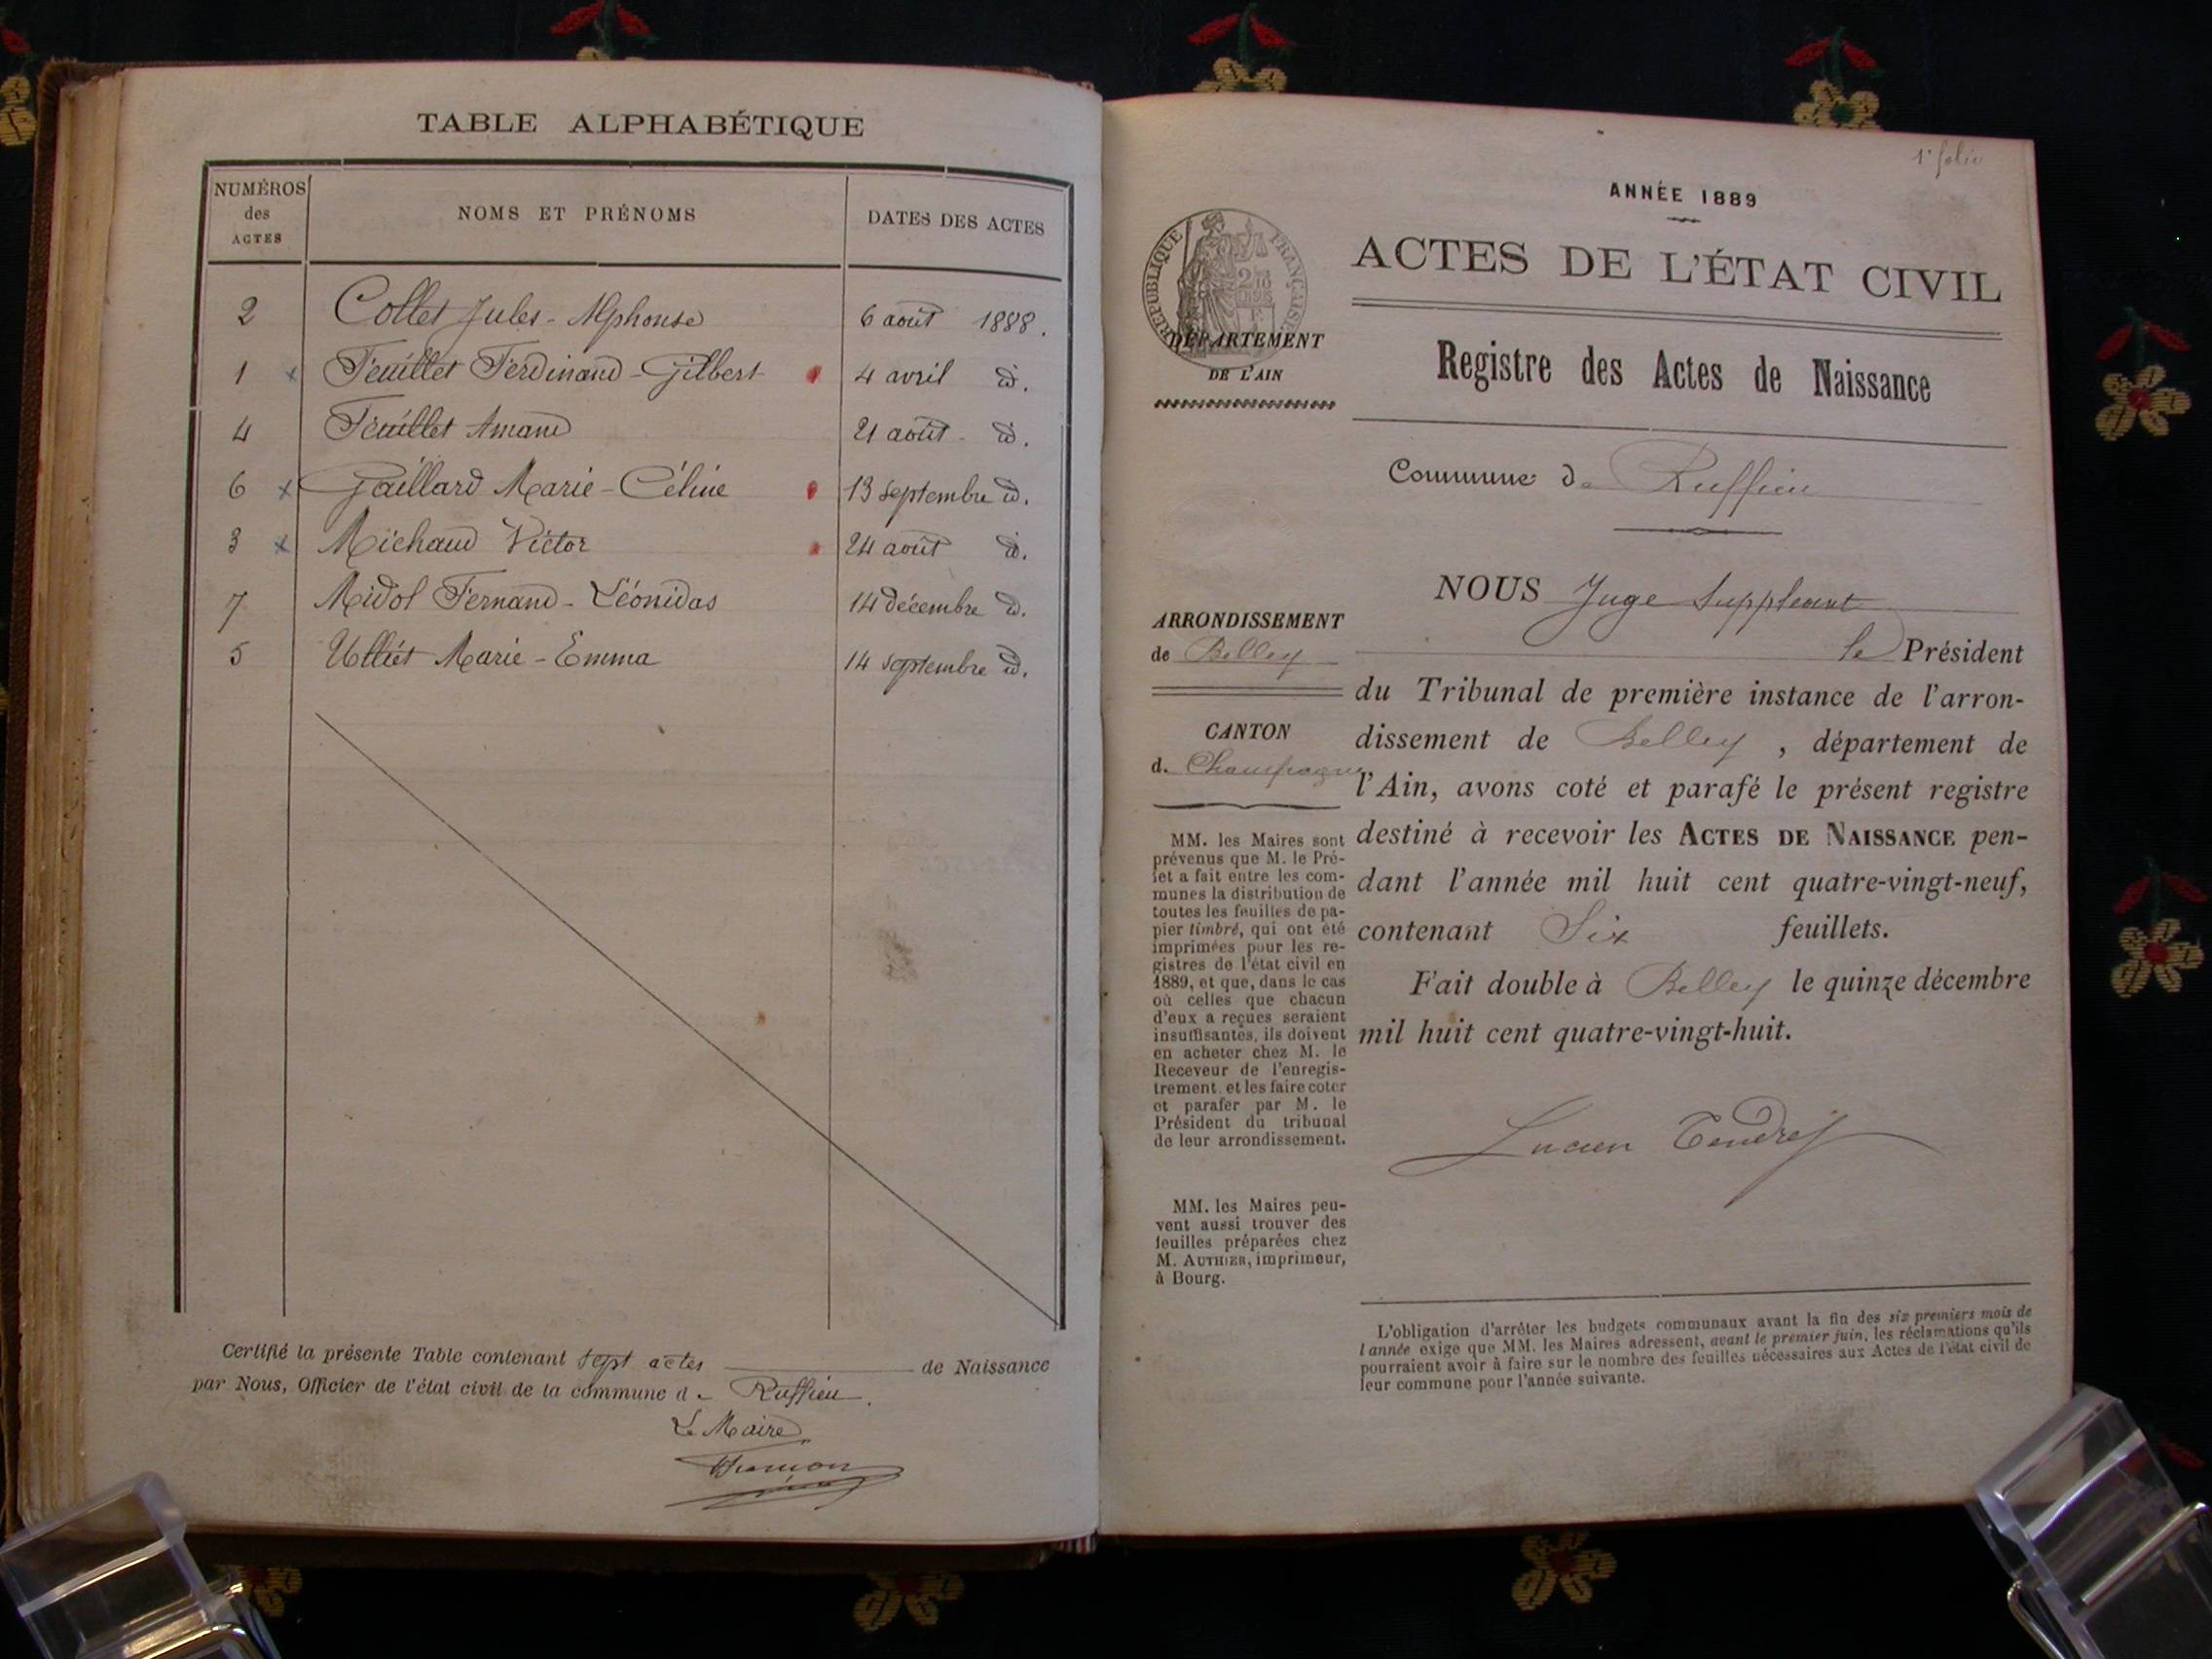 TABLE ALPHABÉTIQUE
NUMÉROS des ACTES
NOMS ET PRÉNOMS
DATES DES ACTES
2 Collet Jules-Alphonse 6 août 1888.
1 x Feuillet Ferdinand-Gilbert 4 avril id.
4 Feuillet Amand 21 août id.
6 x Gaillard Marie-Céline 13 septembre id.
3 x Michaud Victor 24 août id.
7 Midol Fernand-Léonidas 14 décembre id.
5 Ulliet Marie-Emma 14 septembre id.
Certifié la présente Table contenant sept actes de Naissance
par Nous, Officier de l'état civil de la commune de Ruffieu.
Le Maire
1er folio
ANNÉE 1889
ACTES DE L'ÉTAT CIVIL
RÉPUBLIQUE FRANÇAISE
DÉPARTEMENT
DE L'AIN
Registre des Actes de Naissance
Commune de Ruffieu
ARRONDISSEMENT
de Belley
CANTON
d. Champagne
MM. les Maires sont
prévenus que M. le Pré-
fet a fait entre les com-
munes la distribution de
toutes les feuilles de pa-
pier timbré, qui ont été
imprimées pour les re-
gistres de l'état civil en
1889, et que, dans le cas
où celles que chacun
d'eux a reçues seraient
insuffisantes, ils doivent
en acheter chez M. le
Receveur de l'enregis-
trement, et les faire coter
et parafer par M. le
Président du tribunal
de leur arrondissement.
MM. les Maires peu-
vent aussi trouver des
feuilles préparées chez
M. AUTHIER, imprimeur,
à Bourg.
NOUS Juge Suppléant
le Président
du Tribunal de première instance de l'arron-
dissement de Belley, département de
l'Ain, avons coté et parafé le présent registre
destiné à recevoir les ACTES DE NAISSANCE pen-
dant l'année mil huit cent quatre-vingt-neuf,
contenant Six feuillets.
Fait double à Belley le quinze décembre
mil huit cent quatre-vingt-huit.
Lucien Tendret
L'obligation d'arrêter les budgets communaux avant la fin des six premiers mois de
l'année exige que MM. les Maires adressent, avant le premier juin, les réclamations qu'ils
pourraient avoir à faire sur le nombre des feuilles nécessaires aux Actes de l'état civil de
leur commune pour l'année suivante.